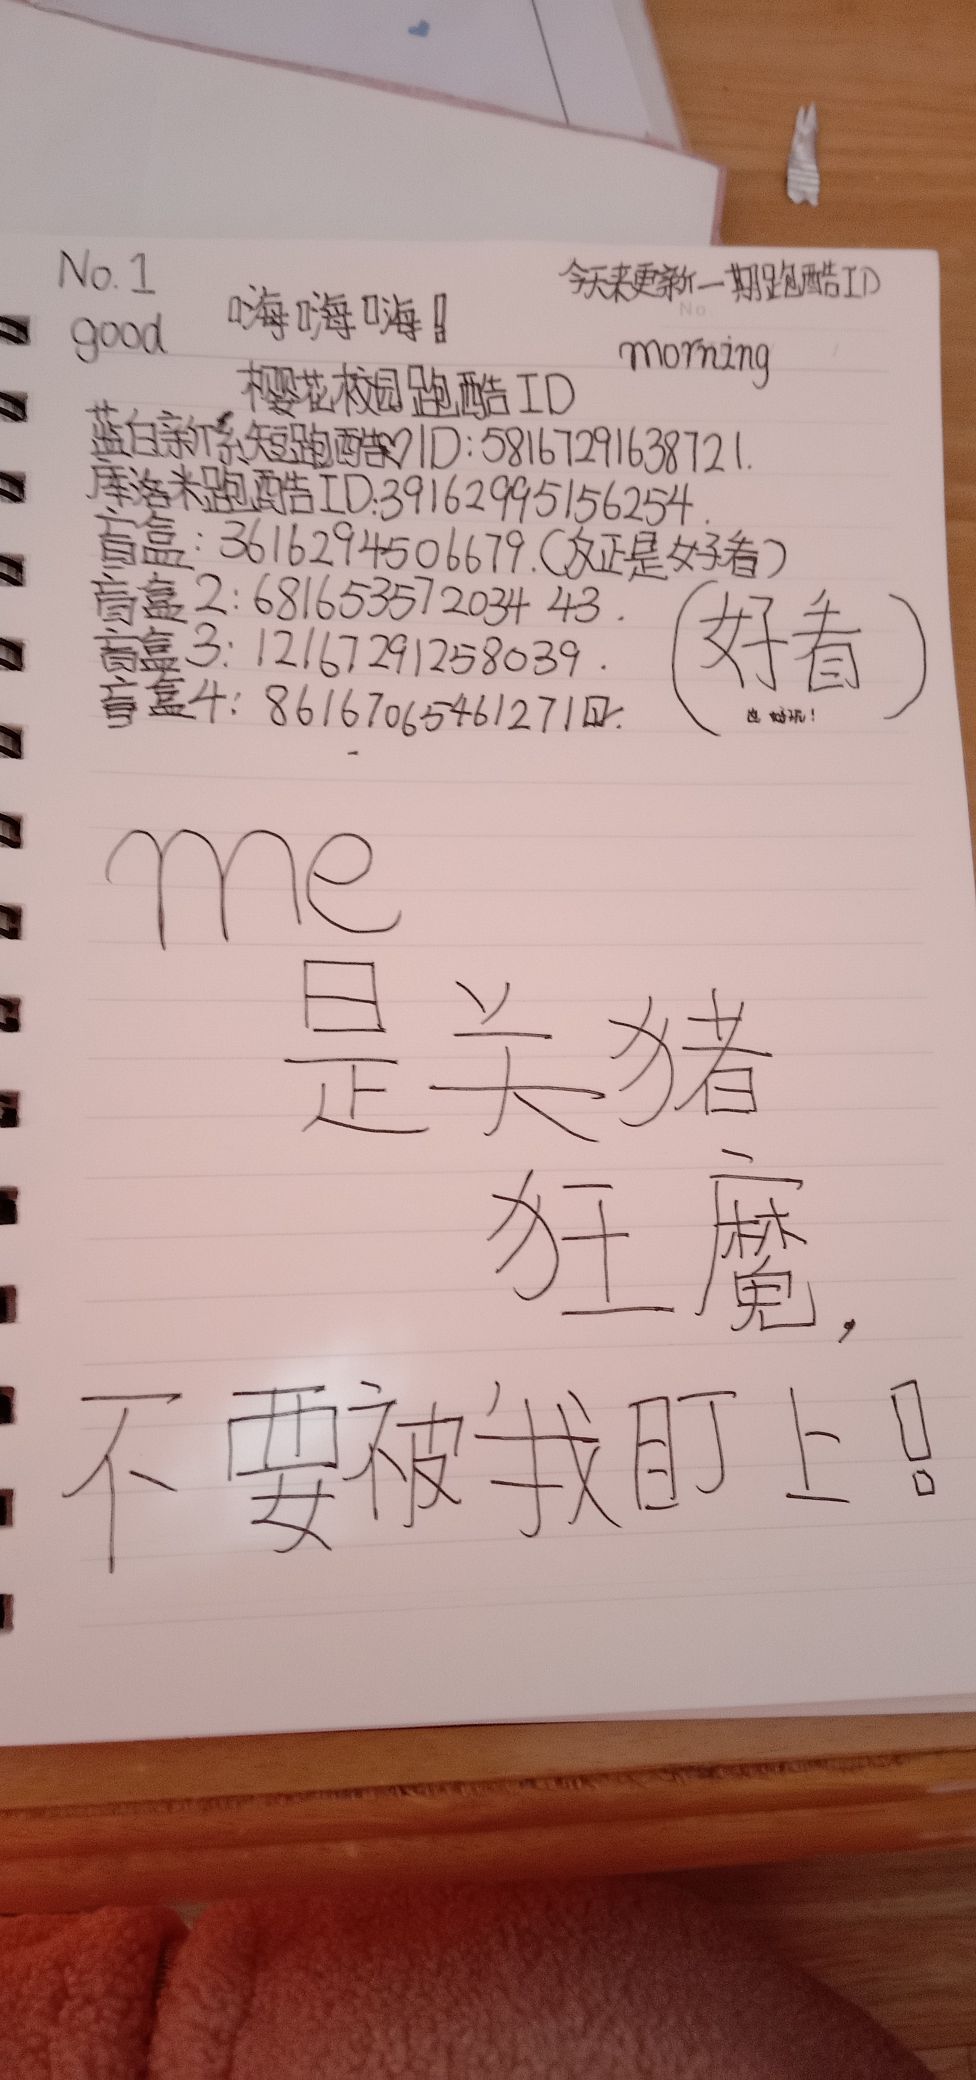 No.1
今天来更新一期跑酷ID
No
good 嗨嗨嗨! morning
樱花校园跑酷ID
蓝白新系短跑酷♡ID:58167291638721.
库洛米跑酷ID:3916299515625４.
盲盒:3616294506679.(这正是女子看)
盲盒2:681653572034 43.
盲盒3:12167291258039.
盲盒4:8616706546127１
(好看
也好玩!)
me
是关猪
狂魔,
不要被我盯上!